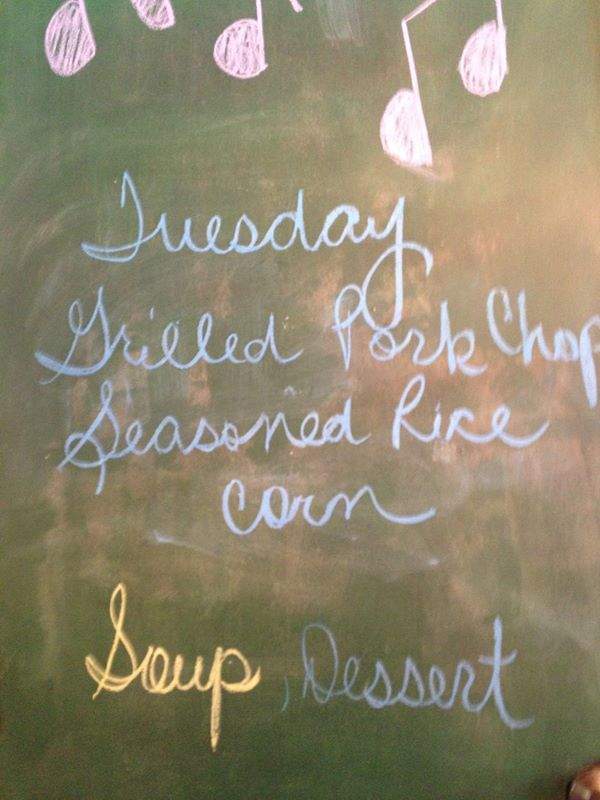 Tuesday
Grilled Pork Chop
Seasoned Rice
Corn
Soup, Dessert